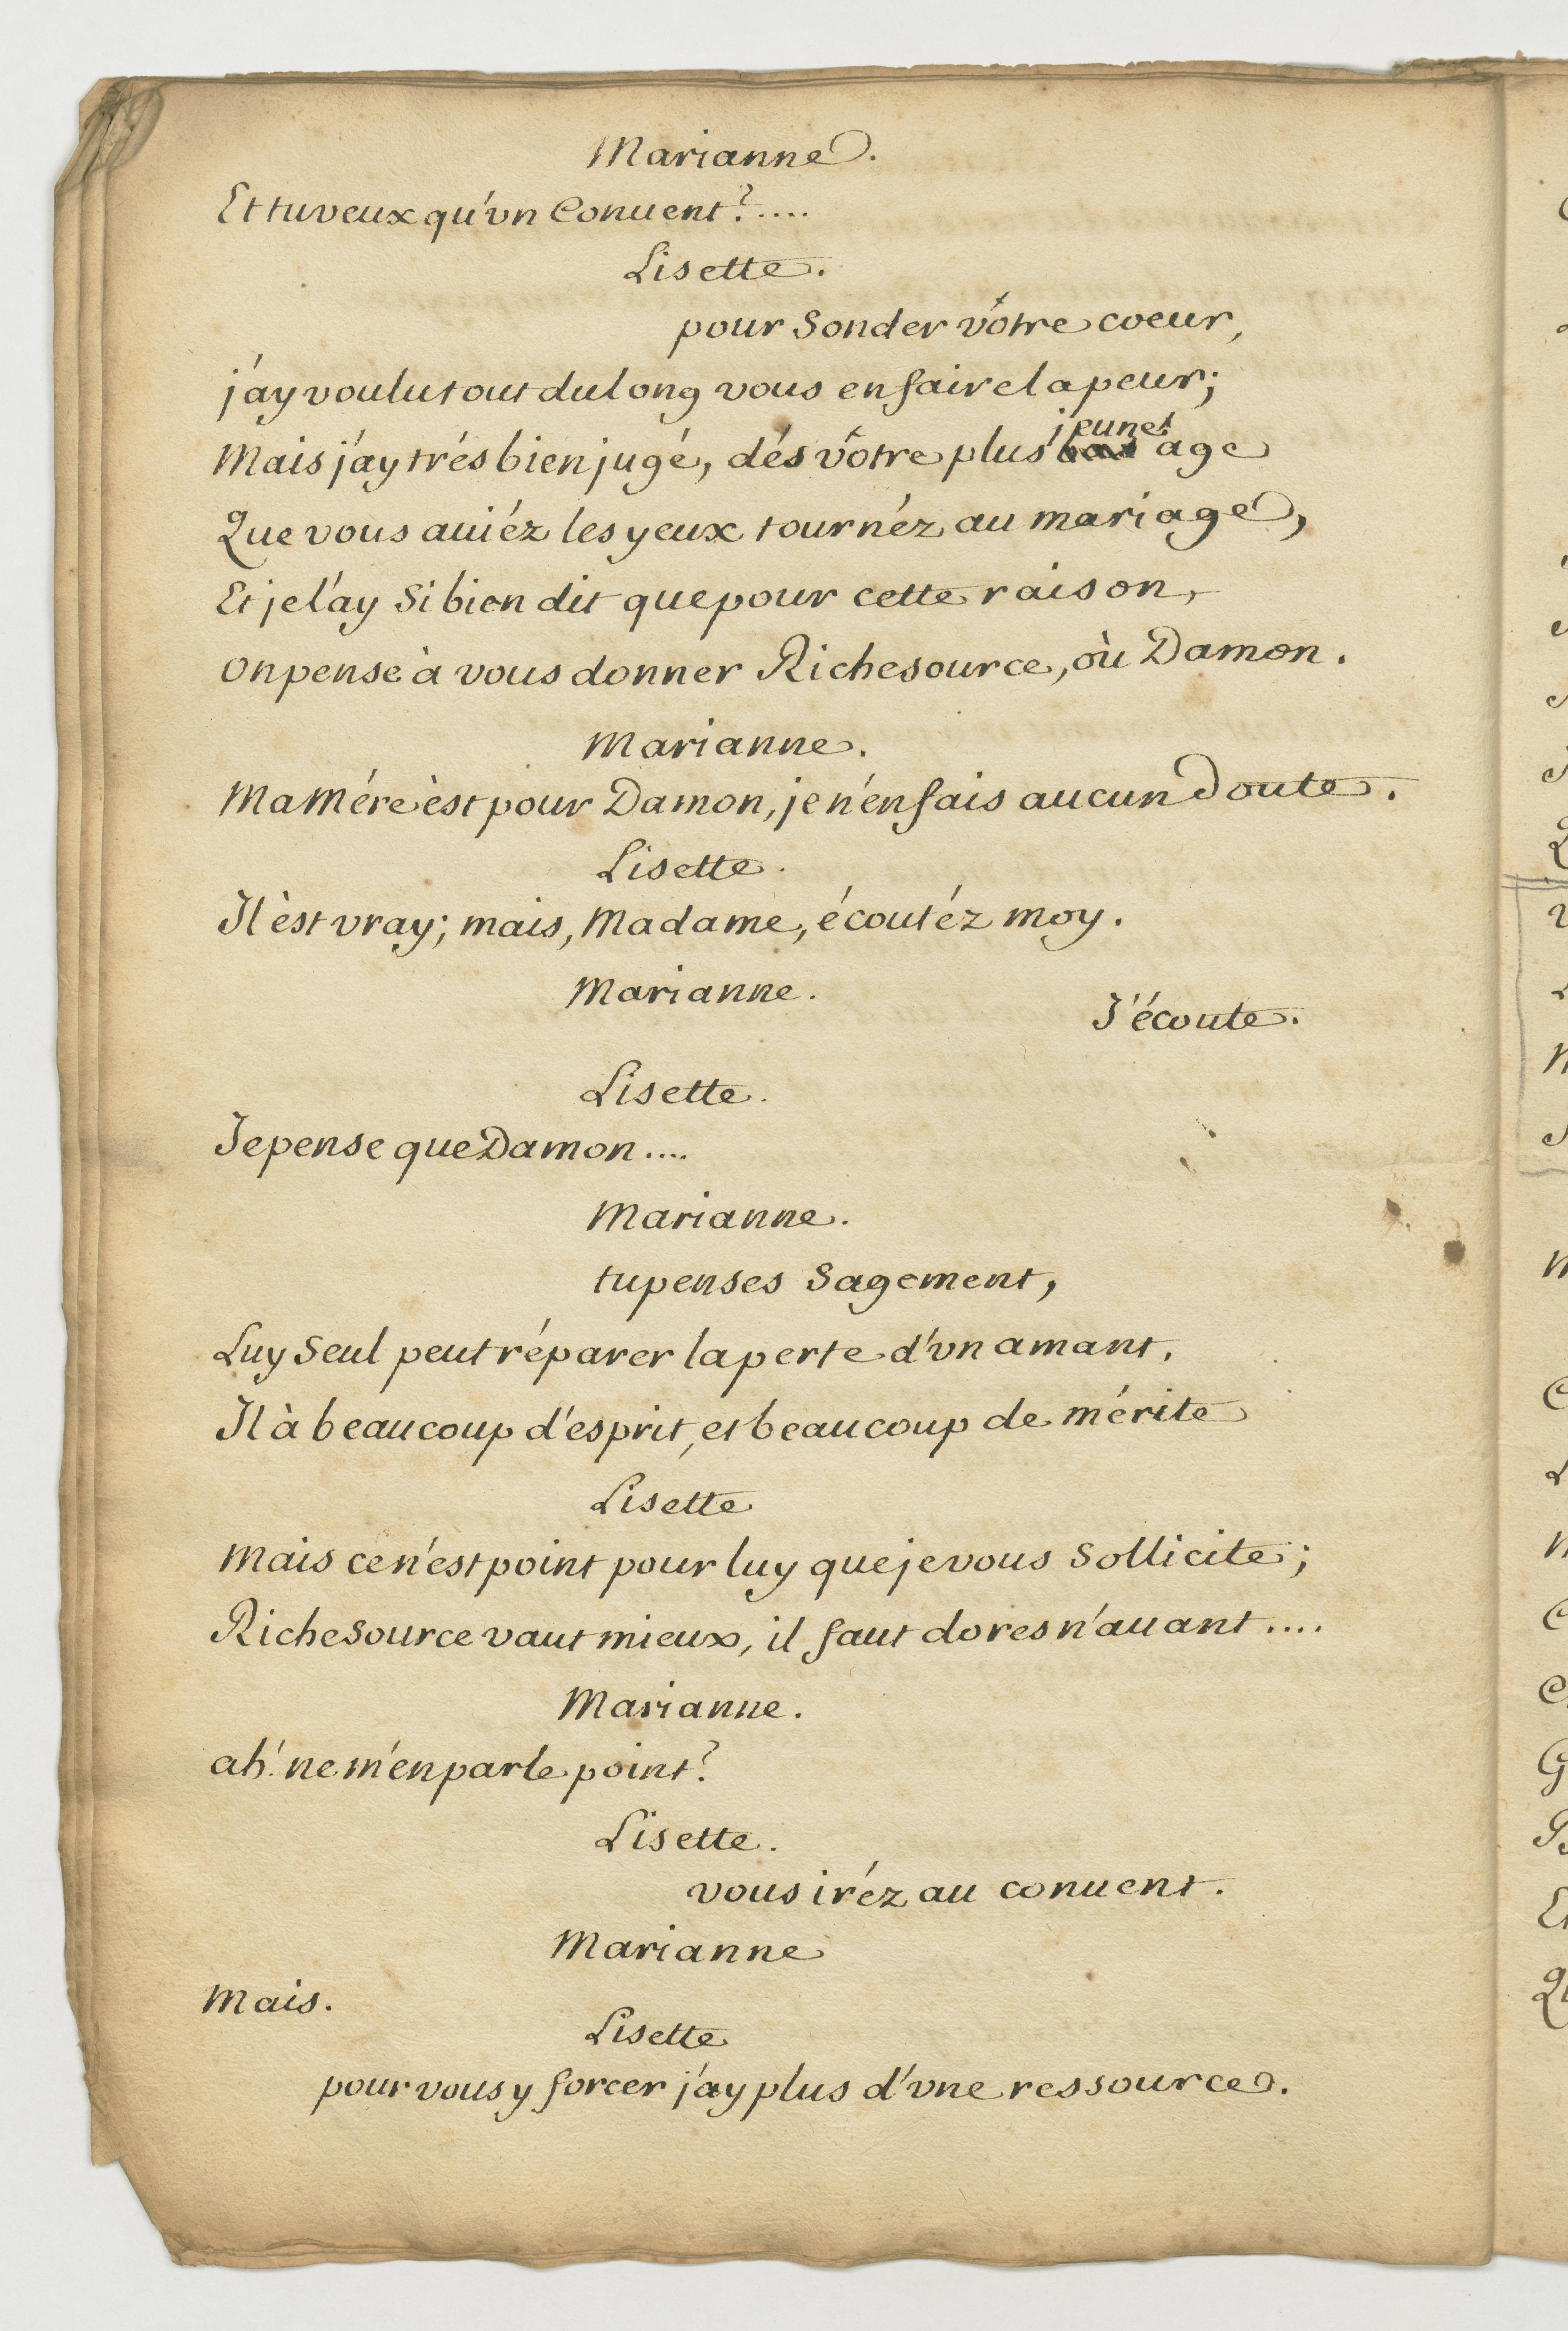 Marianne.
Et tu veux qu'vn Conuent?....
Lisette.
pour Sonder vôtre coeur,
j'ay voulu tout du long vous en faire la peur;
Mais j'ay trés bien jugé, dés vôtre plus jeune age
Que vous auiéz les yeux tournéz au mariage,
Et je l'ay Si bien dit que pour cette raison,
on pense à vous donner Richesource, où Damon.
Marianne.
Ma Mére èst pour Damon, je n'en fais aucun Doute.
Lisette.
Il èst vray; mais, Madame, écoutéz moy.
Marianne.
J'écoute.
Lisette.
Je pense que Damon....
Marianne.
tu penses Sagement,
Luy Seul peut réparer la perte d'vn amant,
Il à beaucoup d'esprit, et beaucoup de mérite
Lisette
Mais ce n'est point pour luy que je vous Sollicite;
RicheSource vaut mieux, il faut dores n'auant....
Marianne.
ah! ne m'en parle point?
Lisette.
vous iréz au conuent.
Marianne
Mais.
Lisette
pour vous y forcer j'ay plus d'vne ressource.